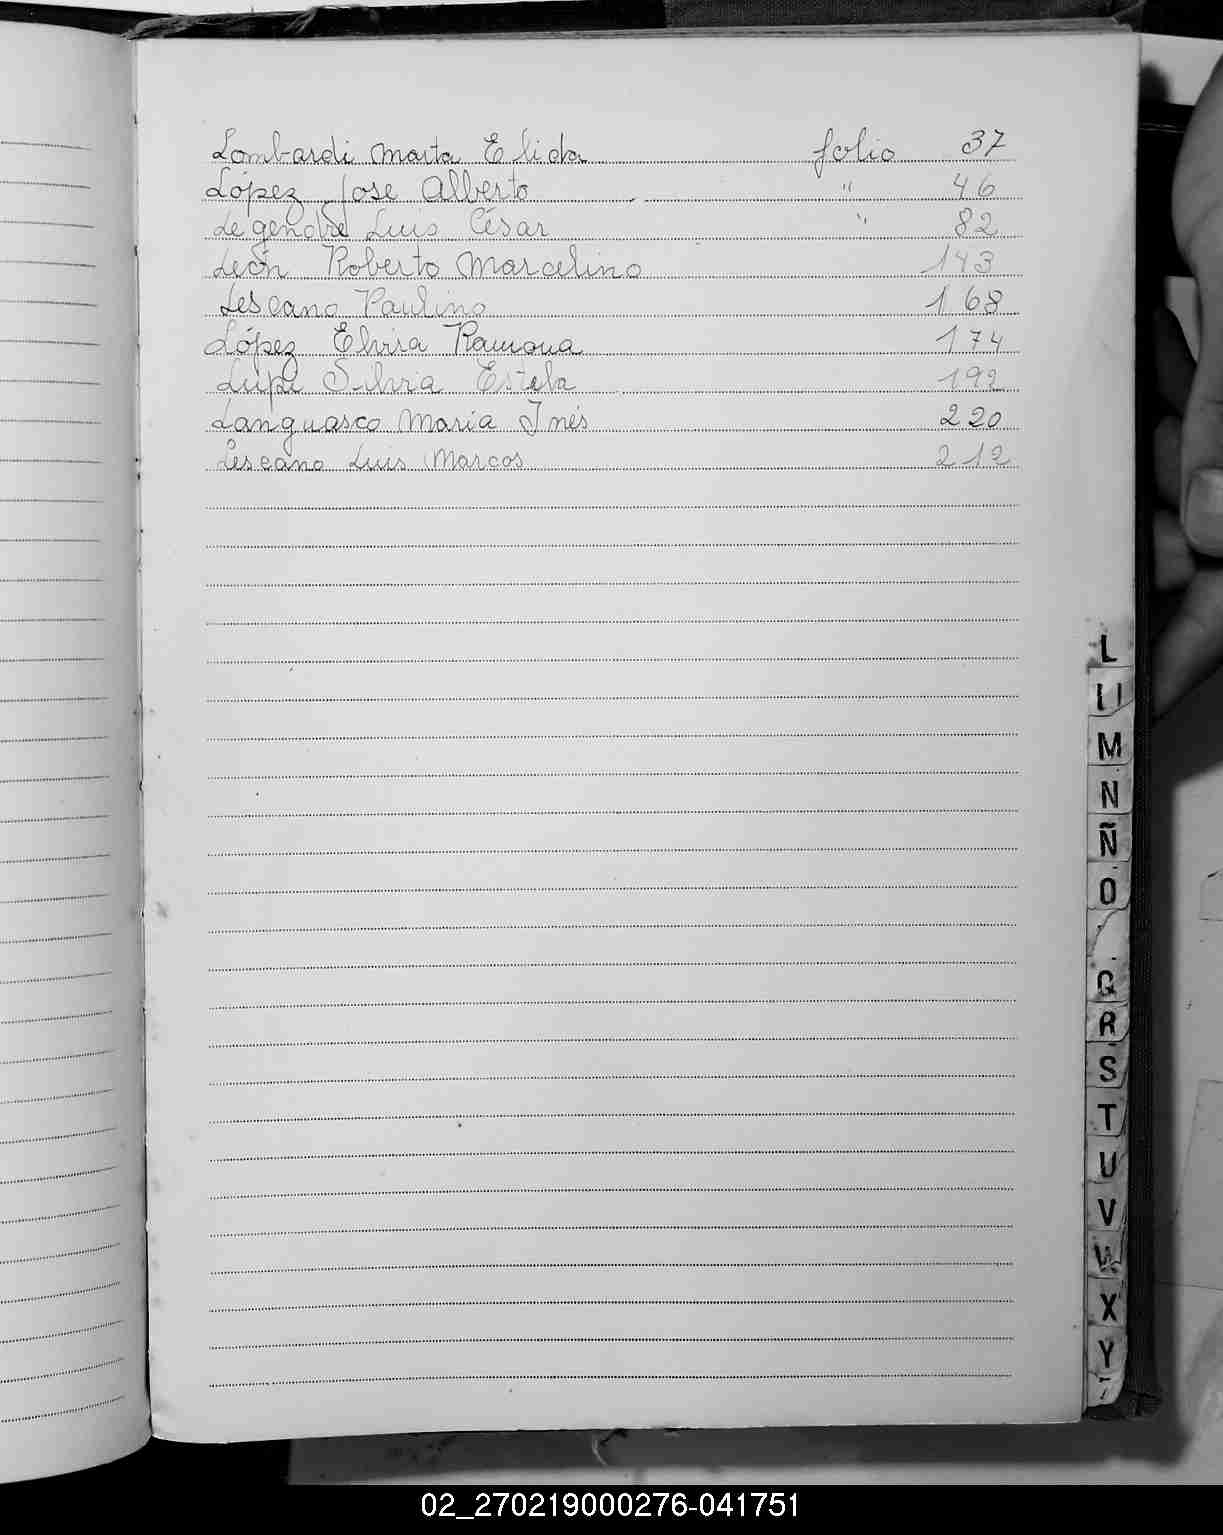 Lombardi Marta Elida folio 37
López Jose Alberto " 46
Legendre Luis César " 82
León Roberto Marcelino 143
Lescano Paulino 168
López Elvira Ramona 174
Lupi Silvia Estela 192
Languasco María Inés 220
Lescano Luis Marcos 212
L
Ll
M
N
Ñ
O
Q
R
S
T
U
V
W
X
Y
02_270219000276-041751